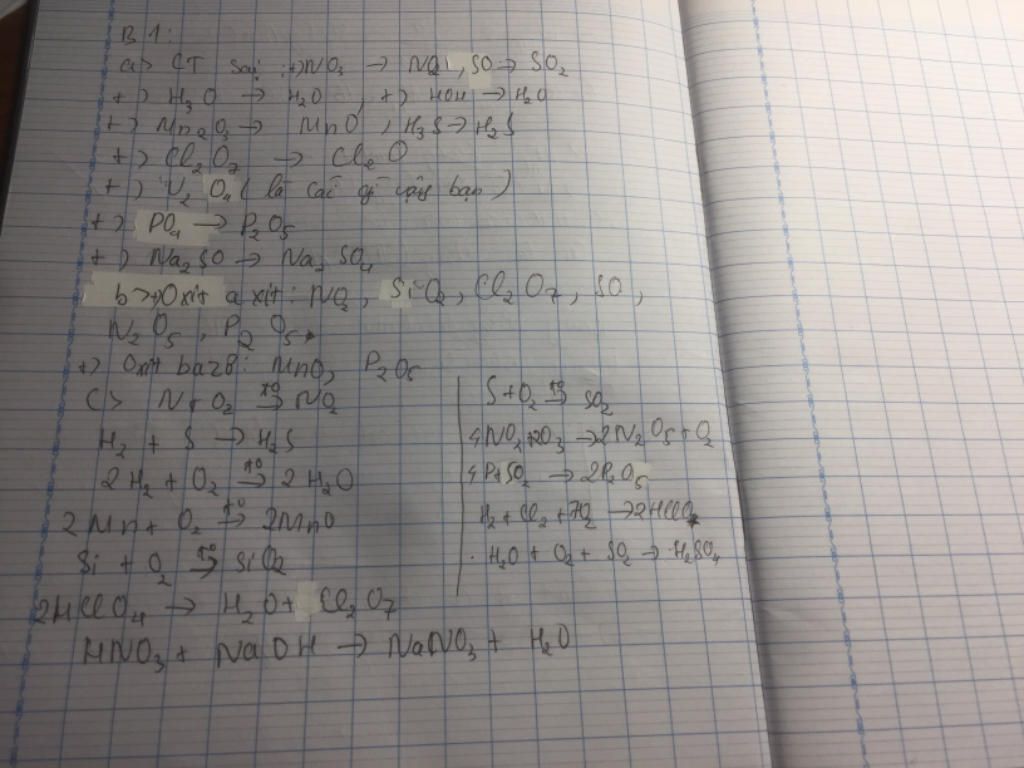 B1:
a> CT sai: +) NO3 → NO2, SO → SO2
+) H3O → H2O, +) HOH → H2O
+) Mn2O3 → MnO, H3S → H2S
+) Cl2O7 → Cl2O
+) V2O4 (là cái gì vậy bạn)
+) PO4 → P2O5
+) Na2SO → Na2SO4
b> +) Oxit axit: NO2, SiO2, Cl2O7, SO,
N2O5, P2O5
+) Oxit bazơ: MnO, P2O5
C> N + O2 →(t°) NO2
H2 + S → H2S
2H2 + O2 →(t°) 2H2O
2Mn + O2 →(t°) 2MnO
Si + O2 →(t°) SiO2
2HClO4 → H2O + Cl2O7
HNO3 + NaOH → NaNO3 + H2O
S + O2 →(t°) SO2
4NO2 + 2O3 → 2N2O5 + O2
4P + 5O2 → 2P2O5
H2 + Cl2 + 7O2 → 2HClO4
H2O + O2 + SO2 → H2SO4